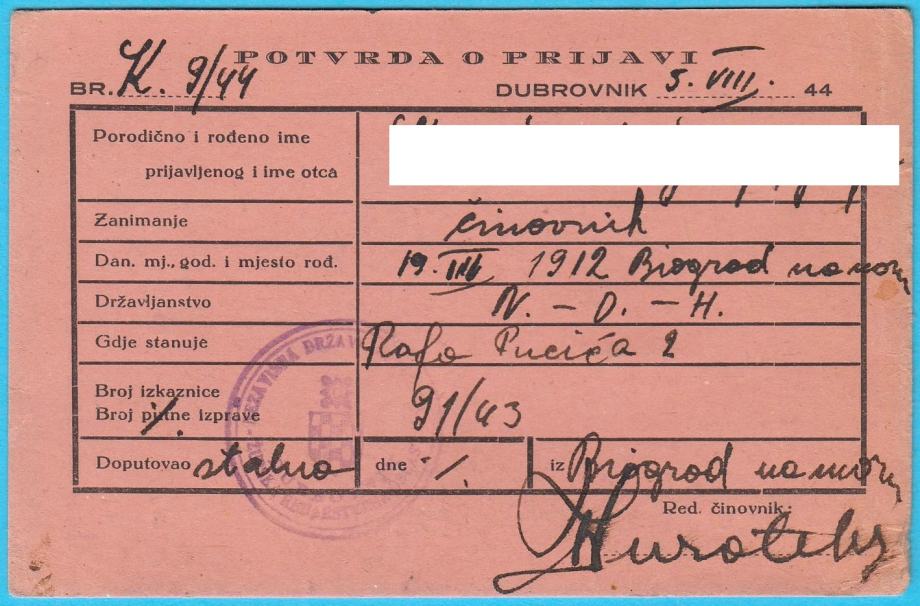 POTVRDA O PRIJAVI
BR. K. 9/44 DUBROVNIK 5. VIII. 44
Porodično i rođeno ime
prijavljenog i ime otca
Zanimanje činovnik
Dan. mj., god. i mjesto rođ. 19. VIII 1912 Biograd na moru
Državljanstvo N. - D. - H.
Gdje stanuje Rafo Pucića 2
Broj izkaznice
Broj putne izprave 91/43
Doputovao stalno dne ·/. iz Biograd na moru
Red. činovnik: